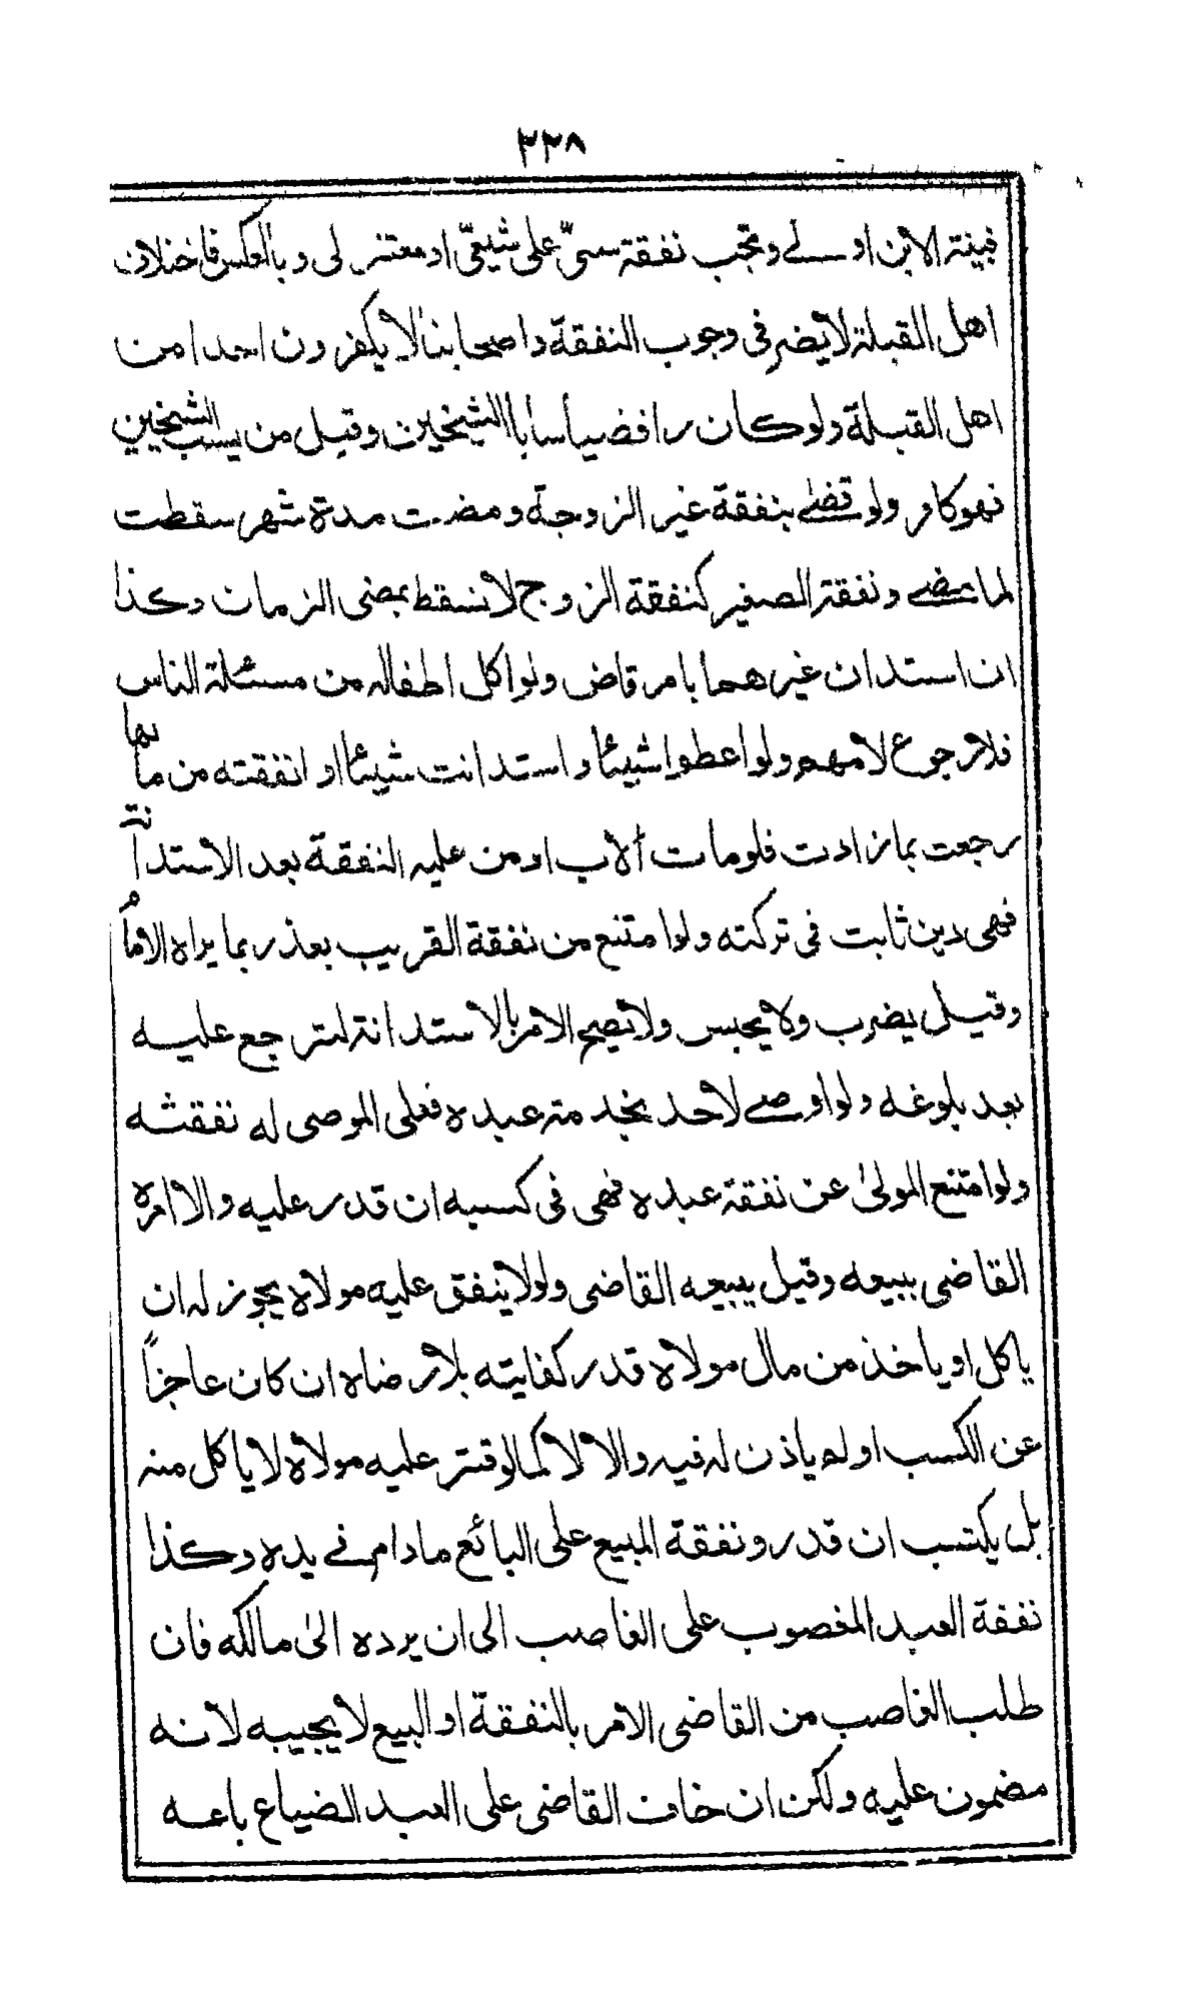 ٣٣٨
فبينة الابن اولى وتجب نفقة سنىّ على شيعىّ او معتزلى وبالعكس فاختلاف
اهل القبلة لا يضر فى وجوب النفقة واصحابنا لا يكفرون احدا من
اهل القبلة ولو كان رافضيا سابا الشيخين وقيل من يسب الشيخين
فهو كافر ولو قضى بنفقة غير الزوجة ومضت مدة شهر سقطت
لما مضى ونفقة الصغير كنفقة الزوج لا تسقط بمضى الزمان وكذا
ان استدان غيرهما بامر قاض ولو اكل اطفاله من مسئلة الناس
فلا رجوع لامهم ولو اعطوا شيئا واستدانت شيئا او انفقته من مالها
رجعت بما زادت فلو مات الاب او من عليه النفقة بعد الاستدانة
فهى دين ثابت فى تركته ولو امتنع من نفقة القريب بعذر بما يراه الامام
وقيل يضرب ولا يحبس ولا يصح الامر بالاستدانة لترجع عليه
بعد بلوغه ولو اوصى لاحد بخدمة عبده فعلى الموصى له نفقته
ولو امتنع المولىٰ عن نفقة عبده فهى فى كسبه ان قدر عليه والا امره
القاضى ببيعه وقيل يبيعه القاضى ولو لا ينفق عليه مولاه يجوز له ان
ياكل او ياخذ من مال مولاه قدر كفايته بلا رضاه ان كان عاجزاً
عن الكسب او لم ياذن له فيه والا لا كما لو قتر عليه مولاه لا ياكل منه
بل يكتسب ان قدر ونفقة المبيع على البائع ما دام فى يده وكذا
نفقة العبد المغصوب على الغاصب الى ان يرده الىٰ مالكه فان
طلب الغاصب من القاضى الامر بالنفقة او البيع لا يجيبه لانه
مضمون عليه ولكن ان خاف القاضى على العبد الضياع باعه